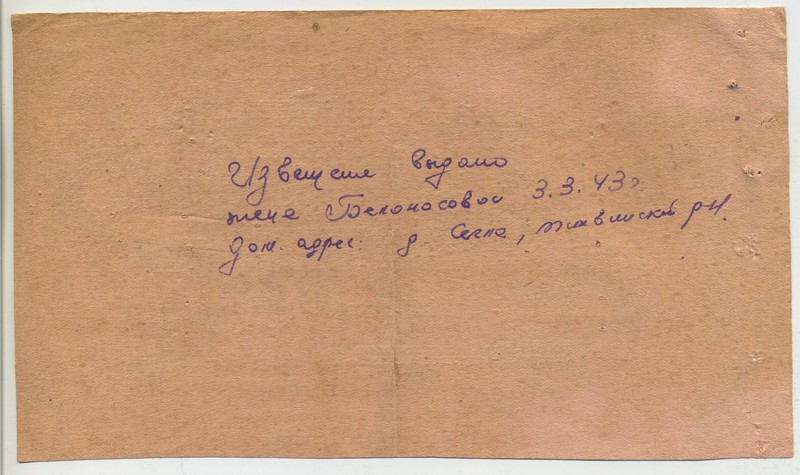 Извещение выдано
жене Белоносовой 3.3.43 г.
Дом. адрес: д. р-н.